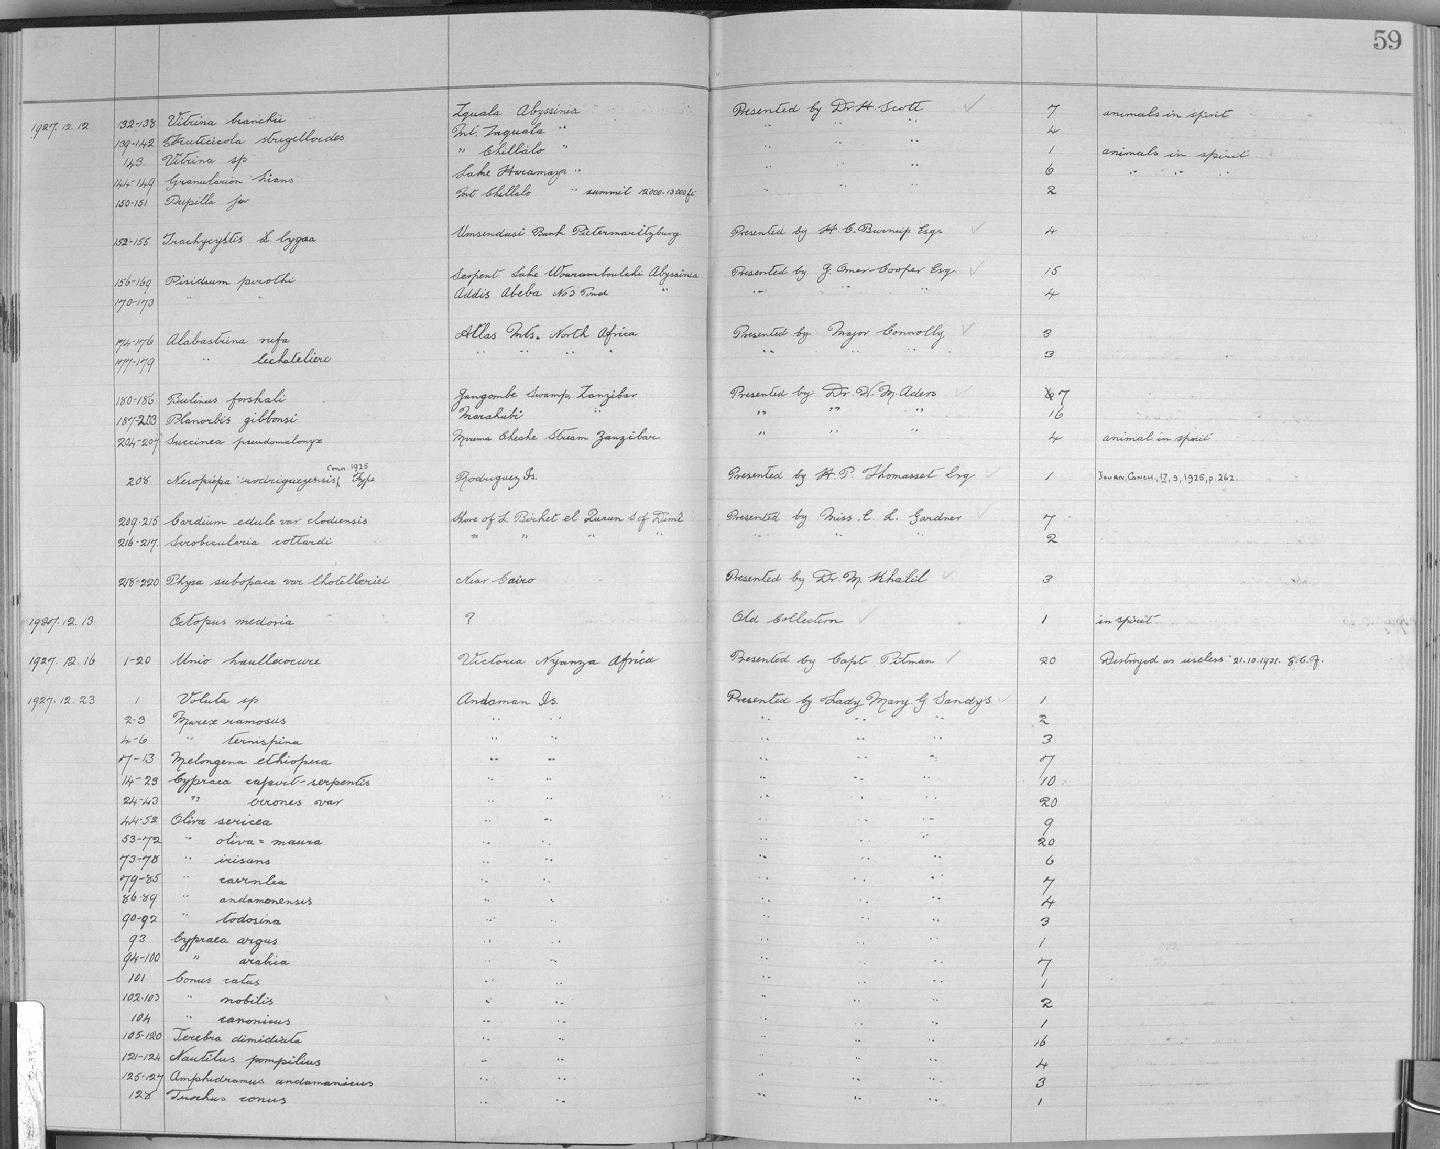 59
1927.12.12 132-138 Vitrina bianchii Zquala Abyssinia Presented by Dr H. Scott ✓ 7 animals in spirit
139-142 Fruticicola strigelloides Mt. Zuquala " " " " 4
143 Vitrina sp " Chillálo " " " " 1 animals in spirit
144-149 Granularion hians Lake Haramaya " " " 6 " " "
150-151 Pupilla Mt Chillalo " summit 12000-13000 ft " " 2
152-155 Trachycystis lygaea Umsendusi Bush Pietermaritzburg Presented by H. C. Burnup Esqr ✓ 4
156-169 Pisidium pirothi Serpent Lake Abyssinia Presented by G. Omer-Cooper Esqr ✓ 15
170-173 " " Addis Abeba No 2 Pond " " " " 4
174-176 Alabastrina rufa Atlas Mts. North Africa Presented by Major Connolly ✓ 3
177-179 " lechatelieri " " " " " " " 3
180-186 Bulinus forskali Gangombe Swamp, Zanzibar Presented by Dr. W. M. Aders ✓ 7
187-203 Planorbis gibbonsi Marahubi " " " " 16
204-207 Succinea pseudomalonyx Mwema Cheche Stream Zanzibar " " " 4 animal in spirit
Conn. 1925
208 Nesopupa rodriguezensis Type Rodriguez Is. Presented by H. P. Thomasset Esq ✓ 1 Journ. Conch., 17, 9, 1925, p. 262.
209-215 Cardium edule var clodiensis Shore of L. Birket el Qurun S of Dimê Presented by Miss. E. L. Gardner ✓ 7
216-217 Scrobicularia cottardi " " " " " " " 2
218-220 Physa subopaca var lhotelleriei Near Cairo Presented by Dr. M. Khalil ✓ 3
1927.12.13 Octopus medoria ? Old Collection ✓ 1 in spirit
1927.12.16 1-20 Unio hautlecocure Victoria Nyanza Africa Presented by Capt. Pitman ✓ 20 Destroyed as useless 21.10.1931.
1927.12.23 1 Voluta sp Andaman Is. Presented by Lady Mary G Sandys ✓ 1
2-3 Murex ramosus " " " " " 2
4-6 " ternispina " " " " " 3
7-13 Melongena ethiopica " " " " " 7
14-23 Cypraea caput-serpentis " " " " " 10
24-43 " errones var " " " " " 20
44-52 Oliva sericea " " " " " 9
53-72 " oliva = maura " " " " " 20
73-78 " irisans " " " " " 6
79-85 " caerulea " " " " " 7
86-89 " andamenensis " " " " " 4
90-92 " todosina " " " " " 3
93 Cypraea argus " " " " " 1
94-100 " arabica " " " " " 7
101 Conus catus " " " " " 1
102-103 " nobilis " " " " " 2
104 " canonicus " " " " " 1
105-120 Terebra dimidiata " " " " " 16
121-124 Nautilus pompilius " " " " " 4
125-127 Amphidromus andamanicus " " " " " 3
128 Trochus conus " " " " " 1